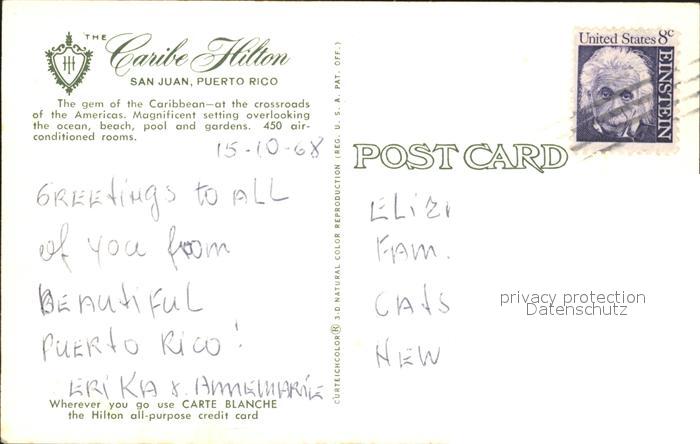 THE
Caribe Hilton
SAN JUAN, PUERTO RICO
The gem of the Caribbean—at the crossroads
of the Americas. Magnificent setting overlooking
the ocean, beach, pool and gardens. 450 air-
conditioned rooms.
15-10-68
GREETINGS to ALL
of you from
BEAUTIFUL
PUERTO RICO!
ERIKA &. ANNEMARIE
Wherever you go use CARTE BLANCHE
the Hilton all-purpose credit card
CURTEICHCOLOR® 3-D NATURAL COLOR REPRODUCTION (REG. U. S. A. PAT. OFF.)
United States 8c
EINSTEIN
POST CARD
FAM.
CATS
NEW
privacy protection
Datenschutz